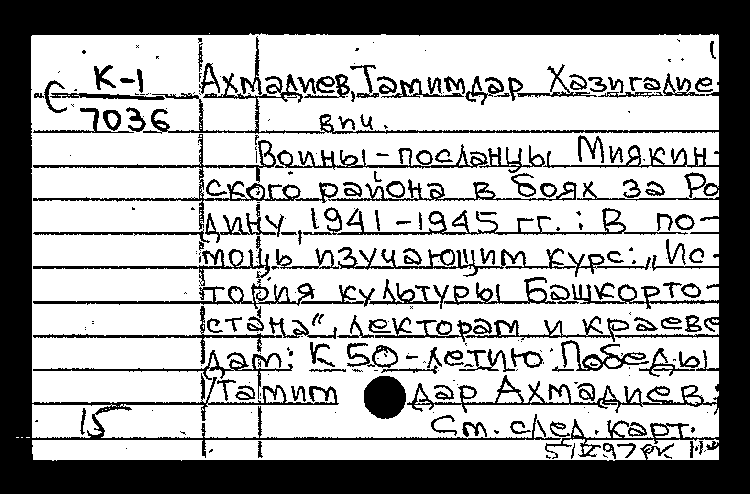 С К-1
7036
Ахмадиев, Тамимдар Хазигалие-
вич.
Воины-посланцы Миякин-
ского района в боях за Ро
дину, 1941-1945 гг.: В по-
мощь изучающим курс: „Ис-
тория культуры Башкорто-
стана", лекторам и краеве
дам: К 50-летию Победы
/Тамим дар Ахмадиев;
15
См. след. карт.